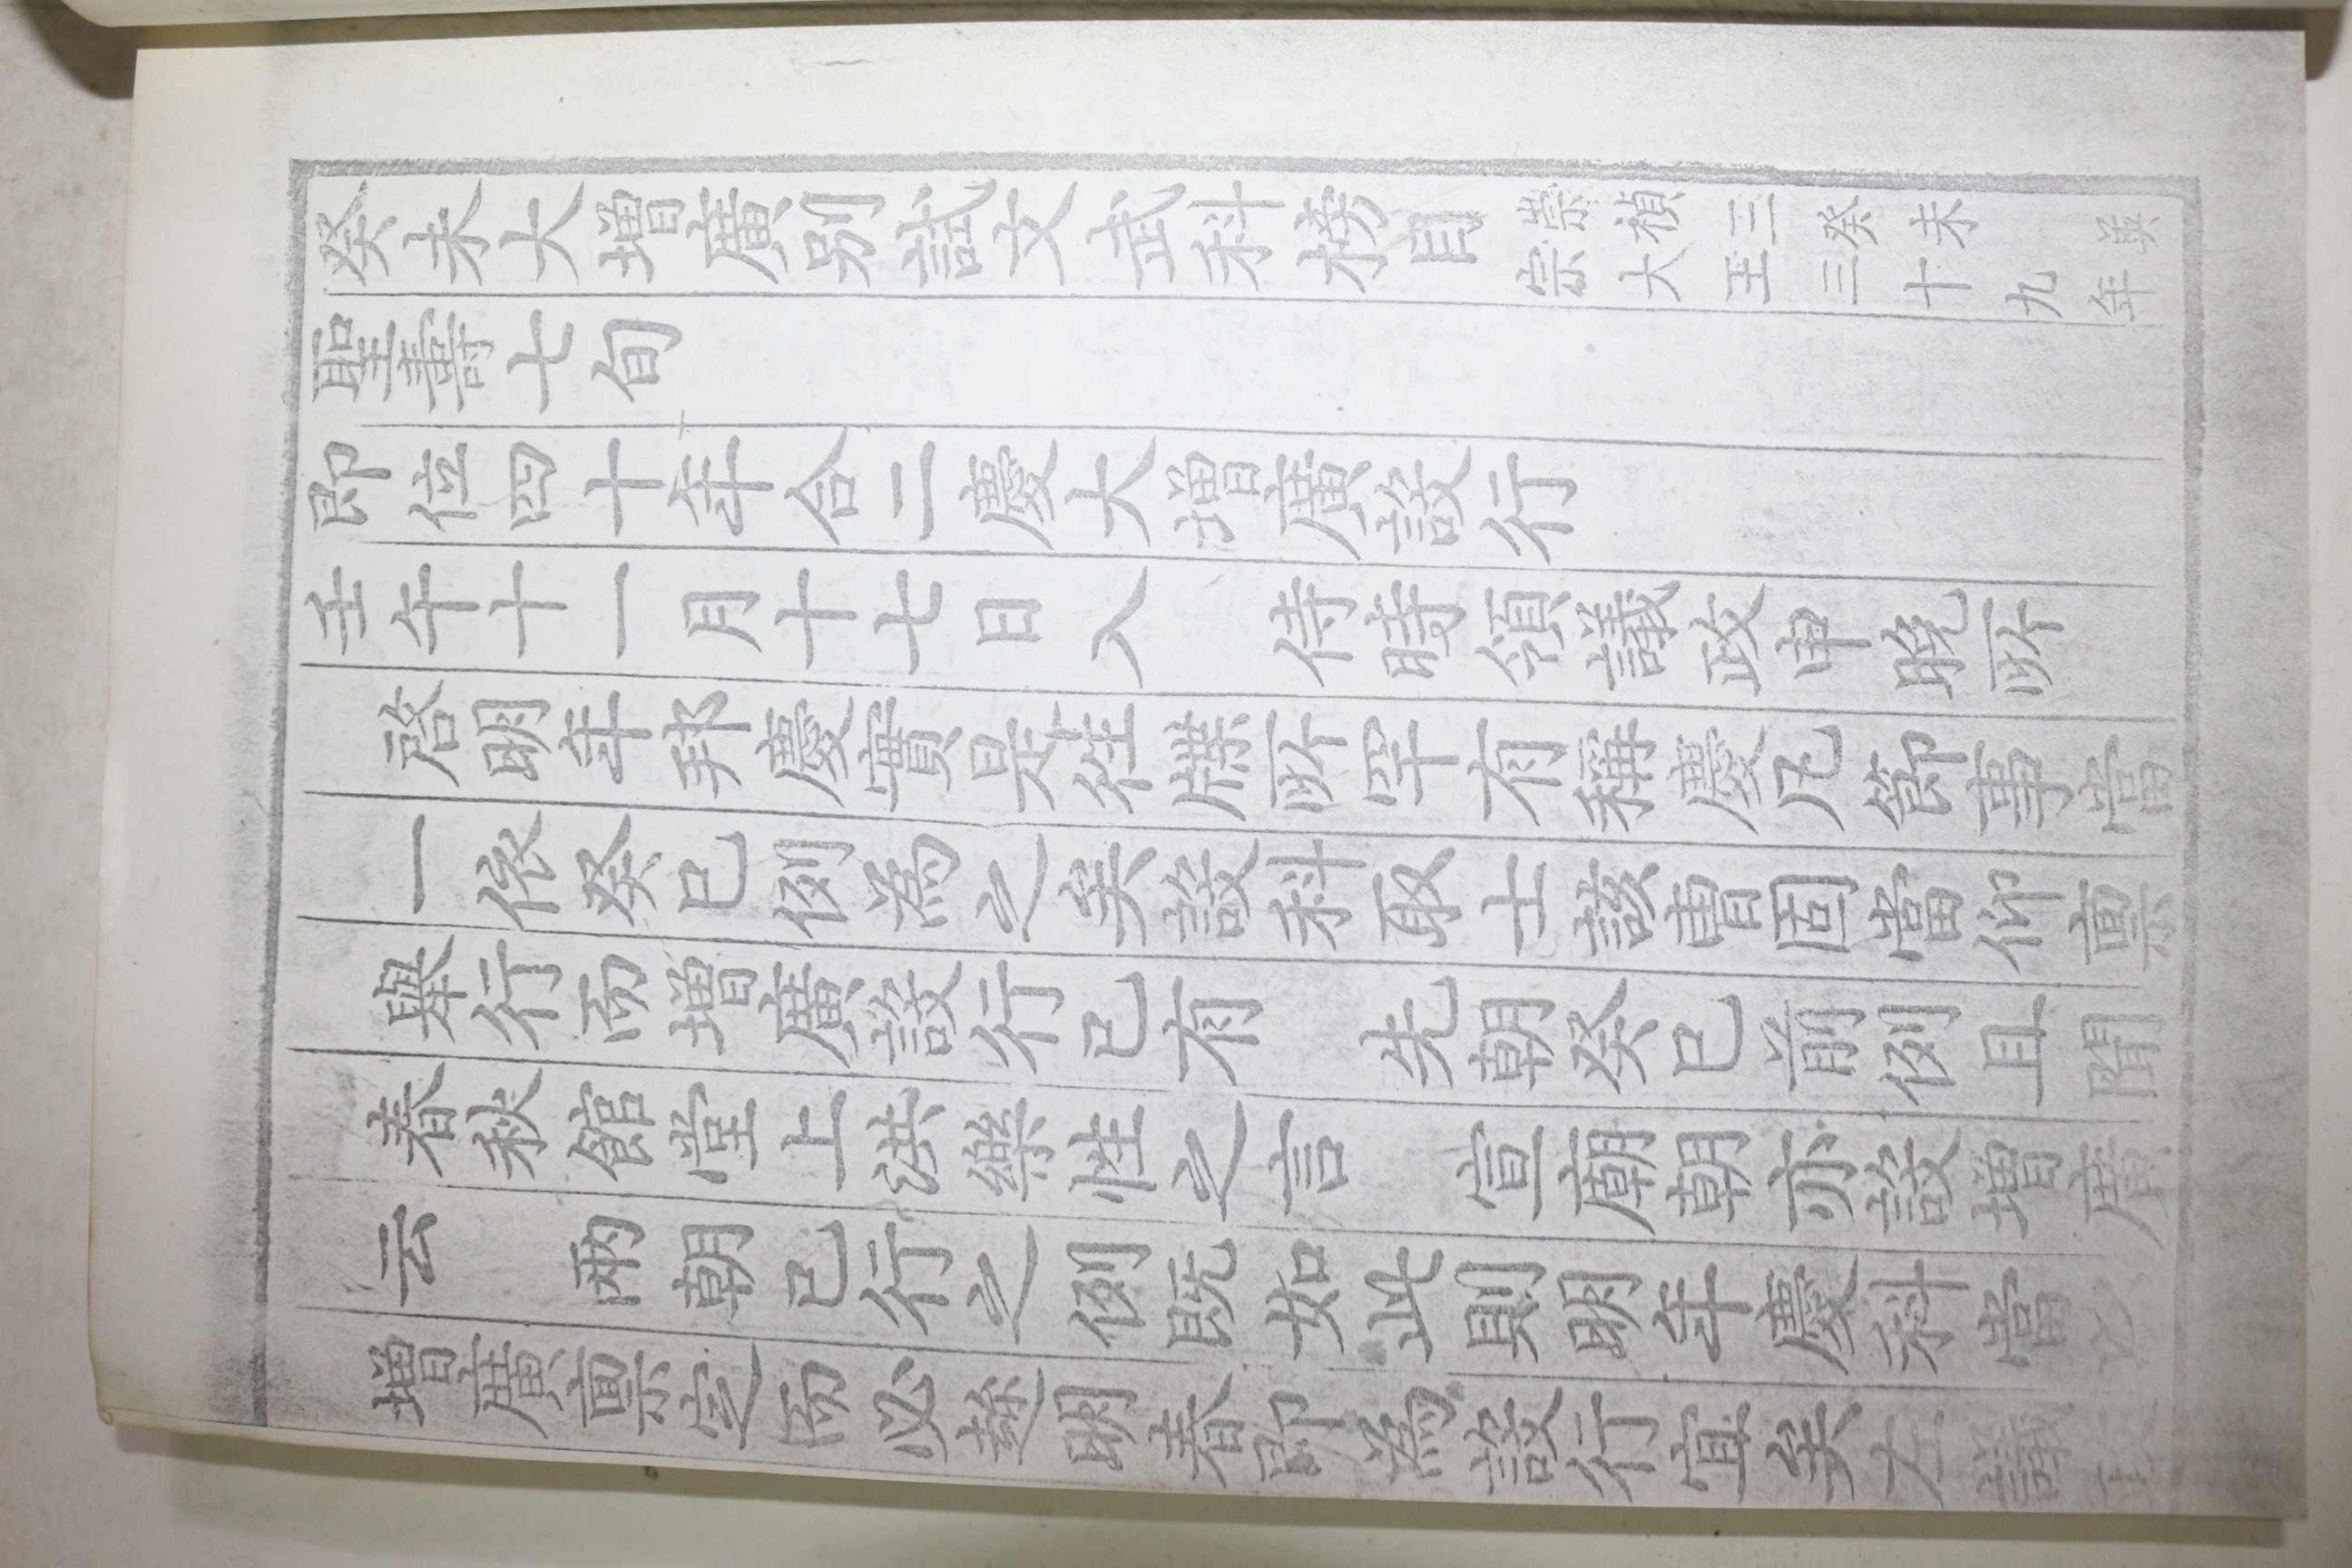 癸未大增廣別試文武科榜目 崇禎三癸未 英
宗大王三十九年
聖壽七旬
即位四十年合二慶大增廣設行
壬午十一月十七日入 侍時領議政申晩所
啓明年邦慶實是徃牒所罕有稱慶凡節事當
一依癸巳例為之矣設科取士該曹固當仰稟
擧行而增廣設行已有 先朝癸巳前例且聞
春秋館堂上洪樂性之言 宣廟朝亦設增廣
云 兩朝已行之例既如此則明年慶科當以
增廣稟定而必趁明春即為設行宜矣左議